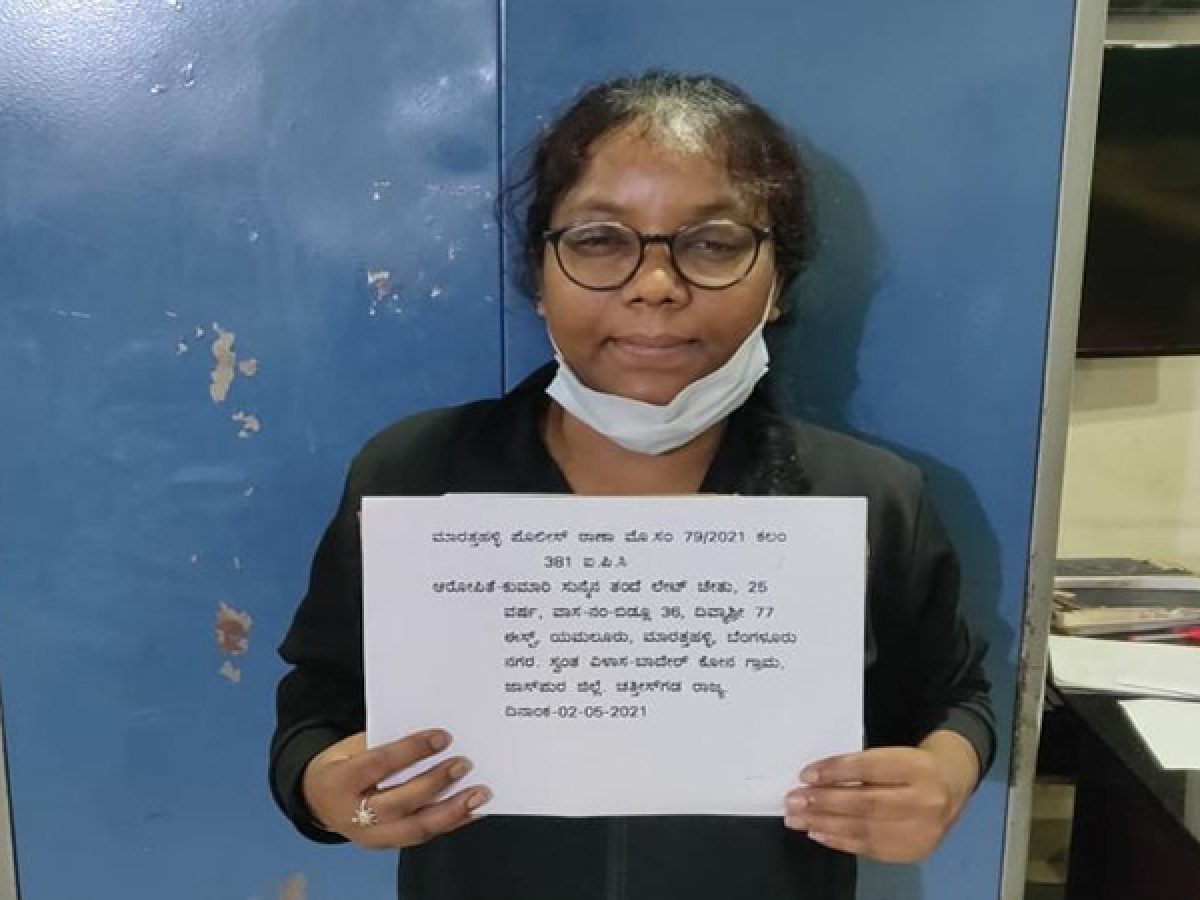 ಮಾರತ್ತಹಳ್ಳಿ ಪೊಲೀಸ್ ಠಾಣಾ ಮೊ.ಸಂ 79/2021 ಕಲಂ
381 ಐ.ಪಿ.ಸಿ
ಆರೋಪಿತೆ-ಕುಮಾರಿ ಸುನೈನ ತಂದೆ ಲೇಟ್ ಚೇತು, 25
ವರ್ಷ, ವಾಸ-ನಂ-ಬಿಡ್ಲೂ 36, ದಿವ್ಯಾಶ್ರೀ 77
ಈಸ್ಟ್, ಯಮಲೂರು, ಮಾರತ್ತಹಳ್ಳಿ, ಬೆಂಗಳೂರು
ನಗರ. ಸ್ವಂತ ವಿಳಾಸ-ಬಾದೇರ್ ಕೋನ ಗ್ರಾಮ,
ಜಾಸ್‌ಪುರ ಜಿಲ್ಲೆ. ಚತ್ತೀಸ್‌ಗಡ ರಾಜ್ಯ.
ದಿನಾಂಕ-02-05-2021